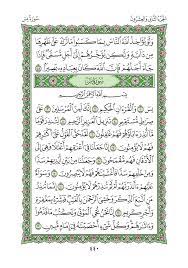 الجزء الثاني والعشرون سورة يس
وَلَوْ يُؤَاخِذُ ٱللَّهُ ٱلنَّاسَ بِمَا كَسَبُوا۟ مَا تَرَكَ عَلَىٰ ظَهْرِهَا
مِن دَآبَّةٍ وَلَٰكِن يُؤَخِّرُهُمْ إِلَىٰٓ أَجَلٍ مُّسَمًّى فَإِذَا
جَآءَ أَجَلُهُمْ فَإِنَّ ٱللَّهَ كَانَ بِعِبَادِهِۦ بَصِيرًۢا ٤٥
سورة يس
بِسْمِ ٱللَّهِ ٱلرَّحْمَٰنِ ٱلرَّحِيمِ
يسٓ ١ وَٱلْقُرْءَانِ ٱلْحَكِيمِ ٢ إِنَّكَ لَمِنَ ٱلْمُرْسَلِينَ ٣
عَلَىٰ صِرَٰطٍ مُّسْتَقِيمٍ ٤ تَنزِيلَ ٱلْعَزِيزِ ٱلرَّحِيمِ ٥ لِتُنذِرَ قَوْمًا
مَّآ أُنذِرَ ءَابَآؤُهُمْ فَهُمْ غَٰفِلُونَ ٦ لَقَدْ حَقَّ ٱلْقَوْلُ عَلَىٰٓ أَكْثَرِهِمْ
فَهُمْ لَا يُؤْمِنُونَ ٧ إِنَّا جَعَلْنَا فِىٓ أَعْنَٰقِهِمْ أَغْلَٰلًا فَهِىَ إِلَى
ٱلْأَذْقَانِ فَهُم مُّقْمَحُونَ ٨ وَجَعَلْنَا مِنۢ بَيْنِ أَيْدِيهِمْ سَدًّا
وَمِنْ خَلْفِهِمْ سَدًّا فَأَغْشَيْنَٰهُمْ فَهُمْ لَا يُبْصِرُونَ ٩ وَسَوَآءٌ
عَلَيْهِمْ ءَأَنذَرْتَهُمْ أَمْ لَمْ تُنذِرْهُمْ لَا يُؤْمِنُونَ ١٠ إِنَّمَا تُنذِرُ
مَنِ ٱتَّبَعَ ٱلذِّكْرَ وَخَشِىَ ٱلرَّحْمَٰنَ بِٱلْغَيْبِ فَبَشِّرْهُ بِمَغْفِرَةٍ
وَأَجْرٍ كَرِيمٍ ١١ إِنَّا نَحْنُ نُحْىِ ٱلْمَوْتَىٰ وَنَكْتُبُ مَا قَدَّمُوا۟
وَءَاثَٰرَهُمْ وَكُلَّ شَىْءٍ أَحْصَيْنَٰهُ فِىٓ إِمَامٍ مُّبِينٍ ١٢
٤٤٠